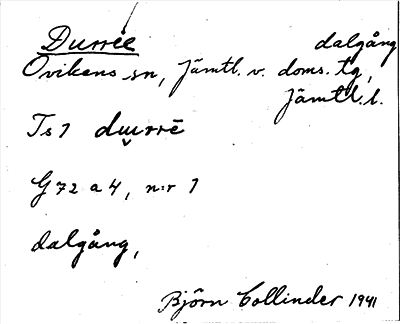 Durrie dalgång
Ovikens sn, Jämtl. v. doms. tg,
Jämtl. l.
Ts 1 du̯rrē
G 72 a 4, n:r 1
dalgång,
Björn Collinder 1941